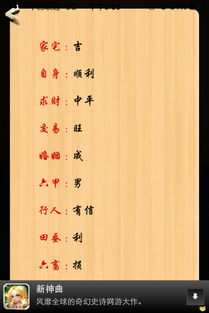 家宅：吉
自身：顺利
求财：中平
交易：旺
婚姻：成
六甲：男
行人：有信
田蚕：利
六畜：损
新神曲
风靡全球的奇幻史诗网游大作。